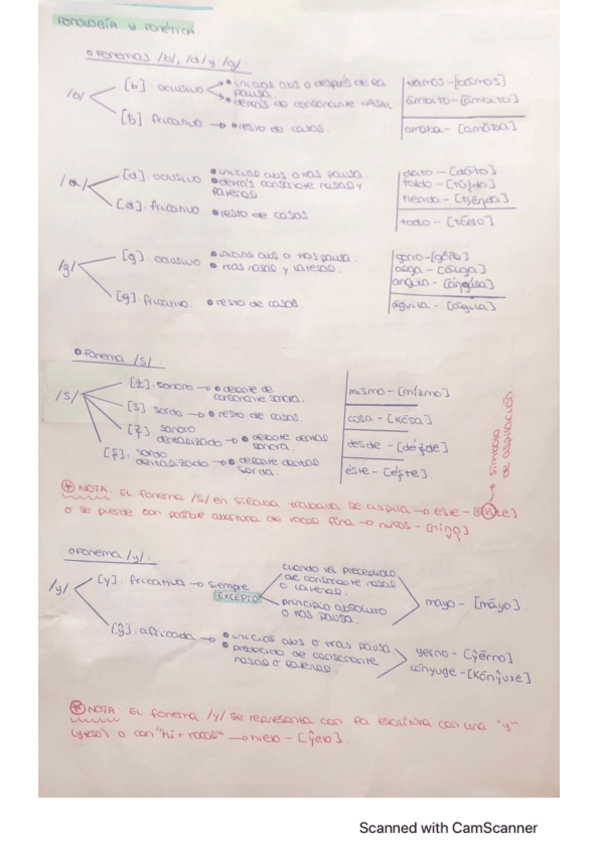 FONOLOGÍA Y FONÉTICA
Fonemas /b/, /d/ y /g/.
/b/
[b] oclusivo
inicios abs o después de la pausa.
detrás de consonante NASAL
[ƀ] fricativo → resto de casos.
vamos - [bámos]
ámbito -
amaba - [amáƀa]
/d/
[d] oclusivo
inicios abs o tras pausa.
detrás consonante nasal y lateral.
[đ] fricativo
resto de casos
dato - [dáto]
toldo - [tóldo]
tienda - [tjénda]
todo - [tóđo]
/g/
[g]. oclusivo
inicios abs o tras pausa.
tras nasal y lateral.
[ǥ] fricativo.
resto de casos.
águila - [áǥila]
fonema /s/
/s/
[z]: sonoro → delante de consonante sonora.
[s] sordo → resto de casos.
sonoro dentalizado → delante dental sonora.
sordo dentalizado → delante dental sorda.
mismo - [mízmo]
cosa - [kósa]
desde - [dézde]
éste - [éste]
símbolo de aspiración.
NOTA: El fonema /s/ en sílaba trabada se aspira → este -
o se pierde con posible abertura de vocal final →
Fonema /y/.
/y/
[y]: fricativa → siempre
EXCEPTO
cuando va precedido de consonante nasal o lateral.
principio absoluto o tras pausa.
mayo - [máyo].
[ŷ]: africada →
inicios abs o tras pausa.
precedido de consonante nasal o lateral.
yerno - [ŷérno]
cónyuge - [kónŷuxe]
NOTA: El fonema /y/ se representa con la escritura con una "y"
(yeso) o con "hi + vocal" → hielo - [ŷelo].
Scanned with CamScanner